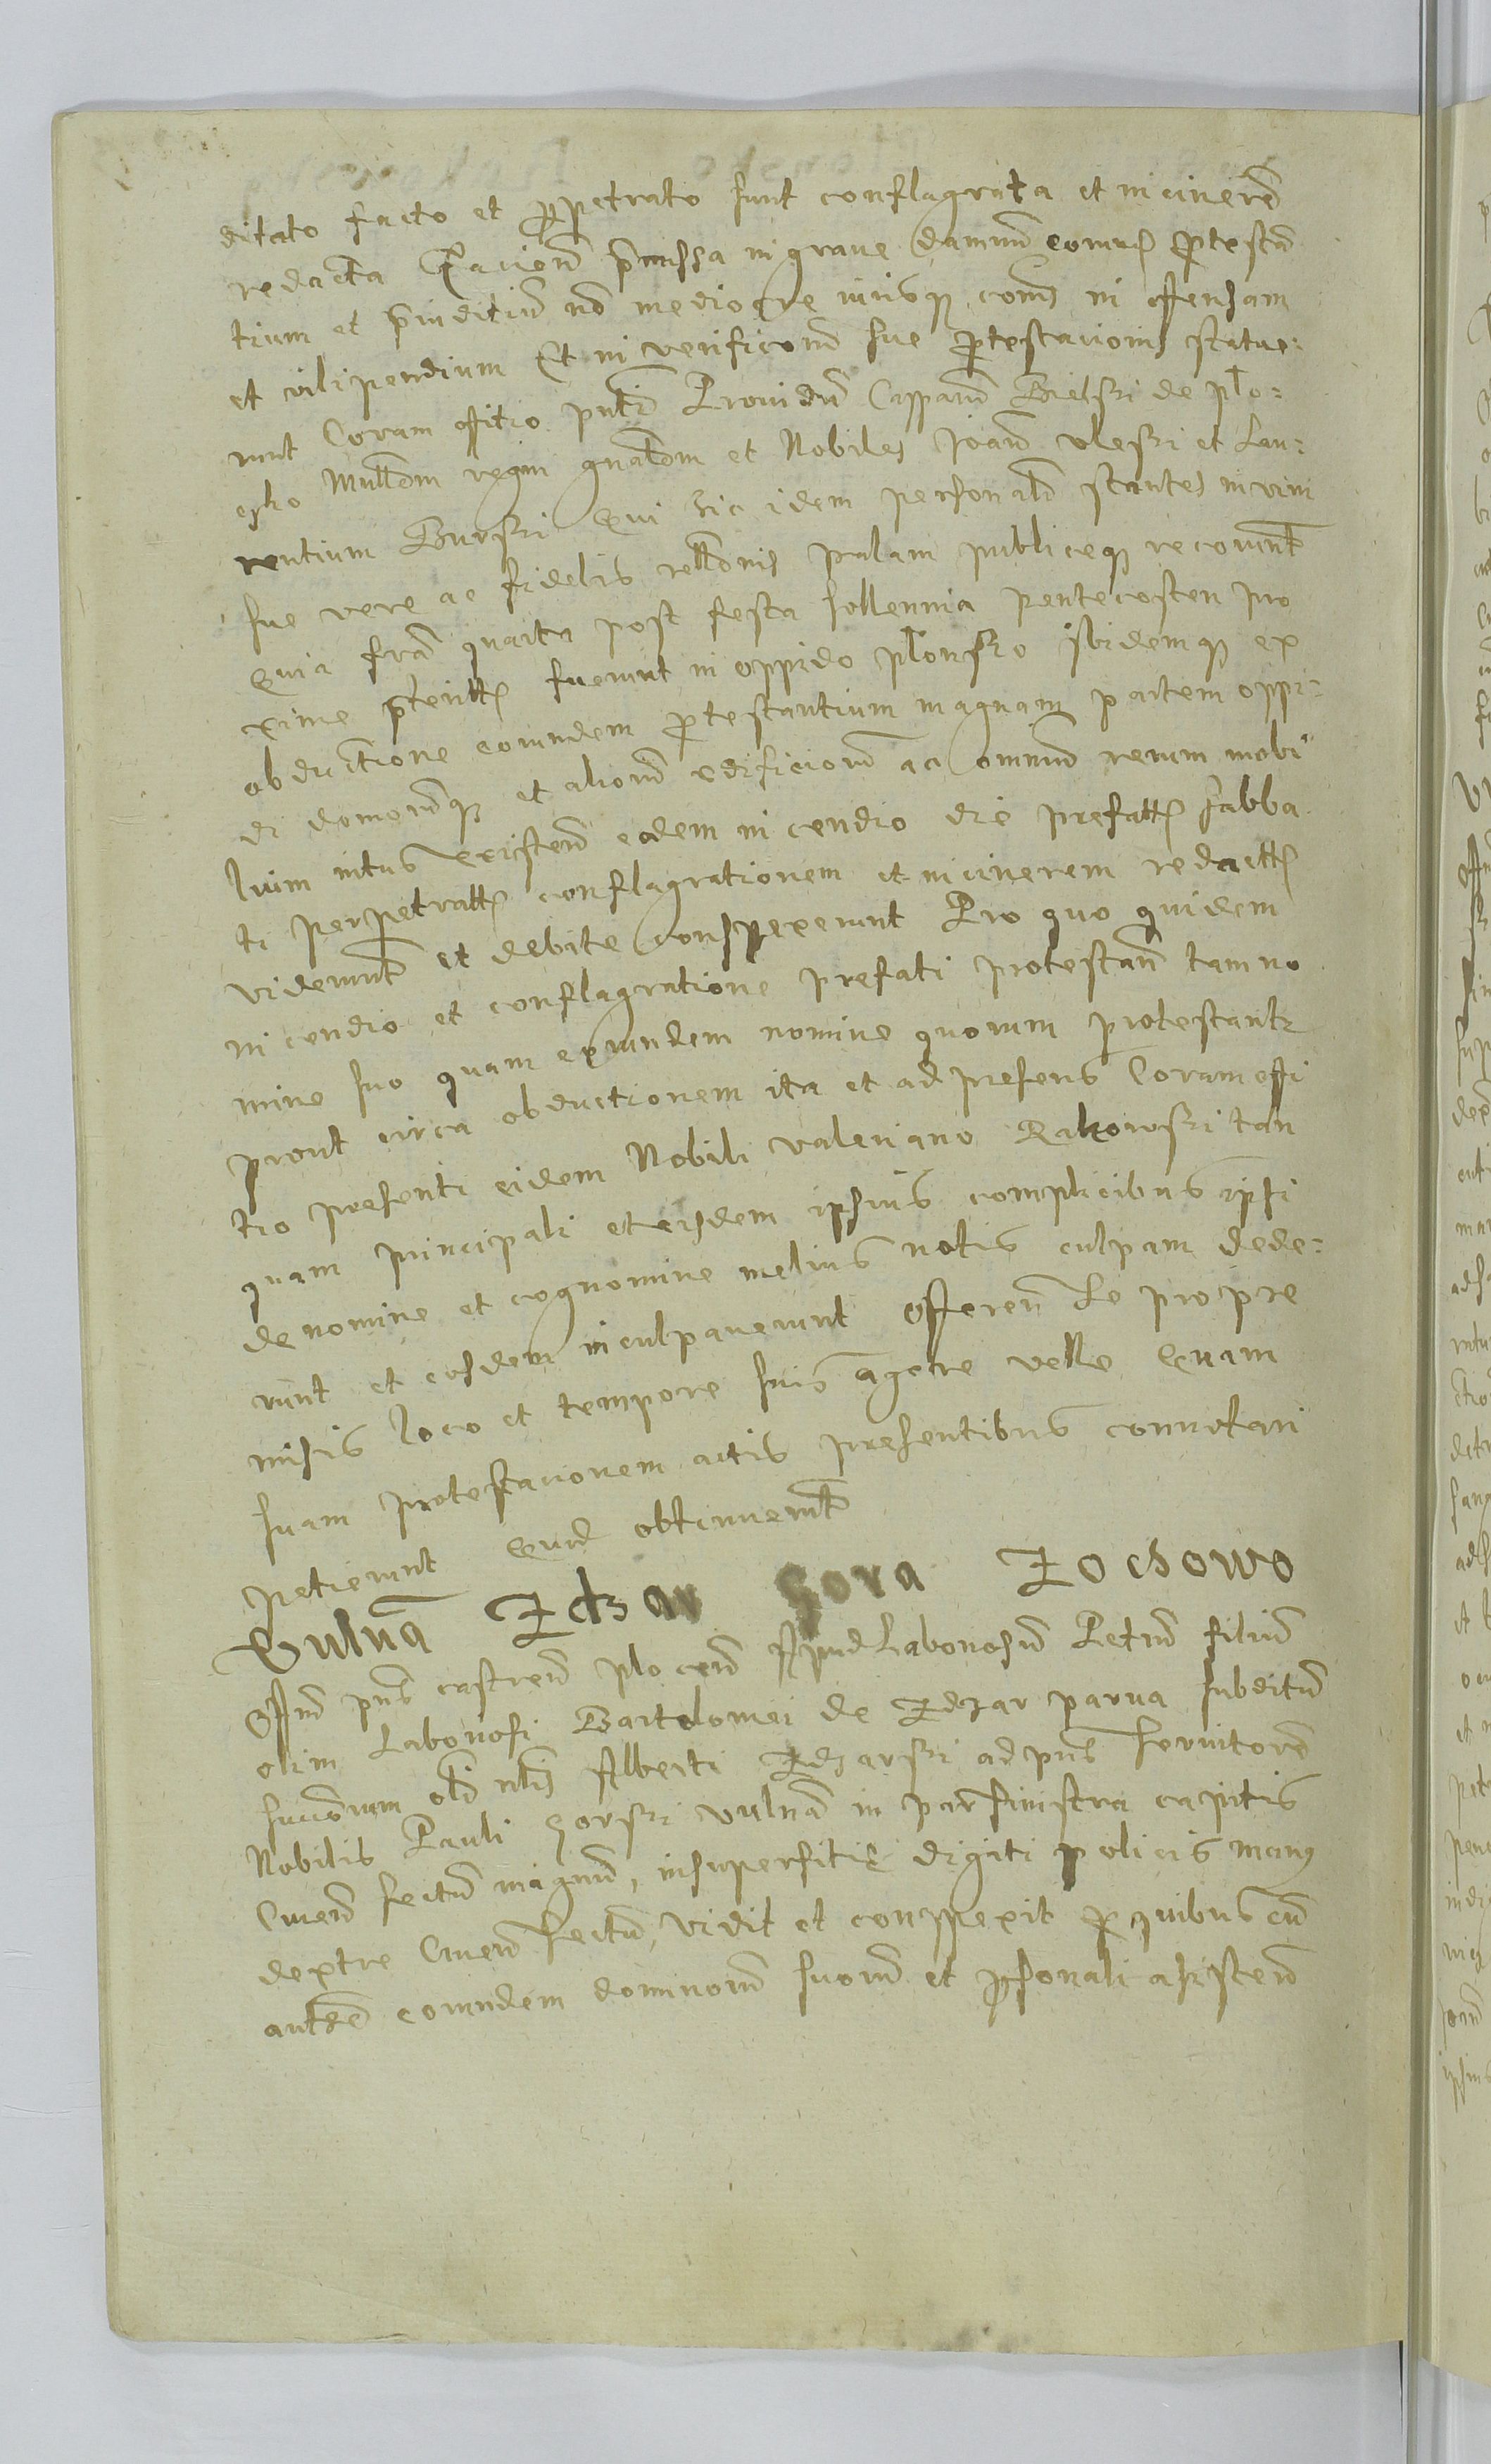 ditato facto et ꝑpetrato sunt conflagrata et in cinerē
redacta Facien̄ p̄missa in graue damnū eorund͛ ꝓtestā
tium et p̄iuditiū nō mediocre iurisqꝫ cōis in offensam
et vilipendium Et in verificoīem sue ꝓtestacionis statue:
runt Coram offitio pn̄ti Prouidū Casparū Bielski de Plo:
czko Mīnlem regni gn̄alem et Nobiles Joan̄ Uleski et Lau:
rentium Burski Qui hic idem personalr̄ stantes in vim
sue vere ac fidelis rel̄lonis palam publiceqꝫ recouerunt
Quia feriā quarta post festa sollennia pentecosten pro
xime p̄terit͛ fuerunt in oppido Plonsko ibidemqꝫ ex
obductione eorundem ꝓtestantium magnam partem oppi:
di domorūqꝫ et aliorū edificiorū ac omniū rerum mobi
lium intus existen̄ eodem incendio die prefatt͛ sabba
ti perpetratt͛ conflagrationem et in cinerem redactt͛
viderunt et debite conspexerunt Pro quo quidem
incendio et conflagratione prefati protestan̄ tam no
mine suo quam eorundem nomine quorum protestantr
prout circa obductionem ita et ad presens Coram offi
tio presenti eidem Nobili Valeriano Rakowski tan
quam principali et eisdem ipsius complicibus ipsi
de nomine et cognomine melius notis culpam dede:
runt et eosdem inculpauerunt Offeren̄ se pro pre
misis loco et tempore suis agere velle Quam
suam protestacionem actis presentibus connotari
petierunt Quod obtinuerunt
Vulnā Zdzar Gora Zochowo
Offm̄ pn̄s castren̄ plocen̄ Apud Laboriosū Petrū filiū
olim Laboriosi Bartolomei de Zdzar parua subditū
successorum olī nl̄is Alberti Zdzarski ad pn̄s seruitorē
Nobilis Pauli Gorski vulnā in parte sinistra capitis
Cruen̄ sectū magnū, in superfitie digiti policis manꝰ
dextre Cruen̄ sectū, vidit et conspexit ꝓ quibus cū
autte eorundem dominorū suorū et ꝑsonali asisten̄